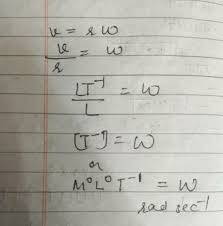 v = rω
v/r = ω
LT⁻¹/L = ω
[T⁻¹] = ω
or
M⁰L⁰T⁻¹ = ω
rad sec⁻¹